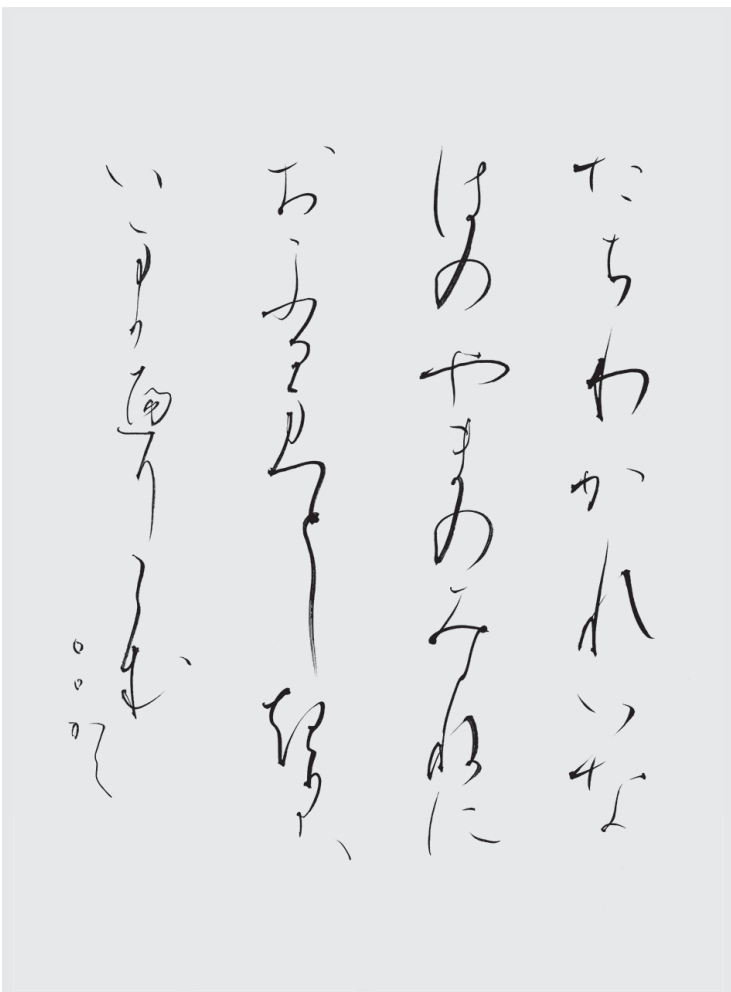 たちわかれいな
はのやまのみねに
おふるまつとしきかは
いまかへりこむ
○○かく